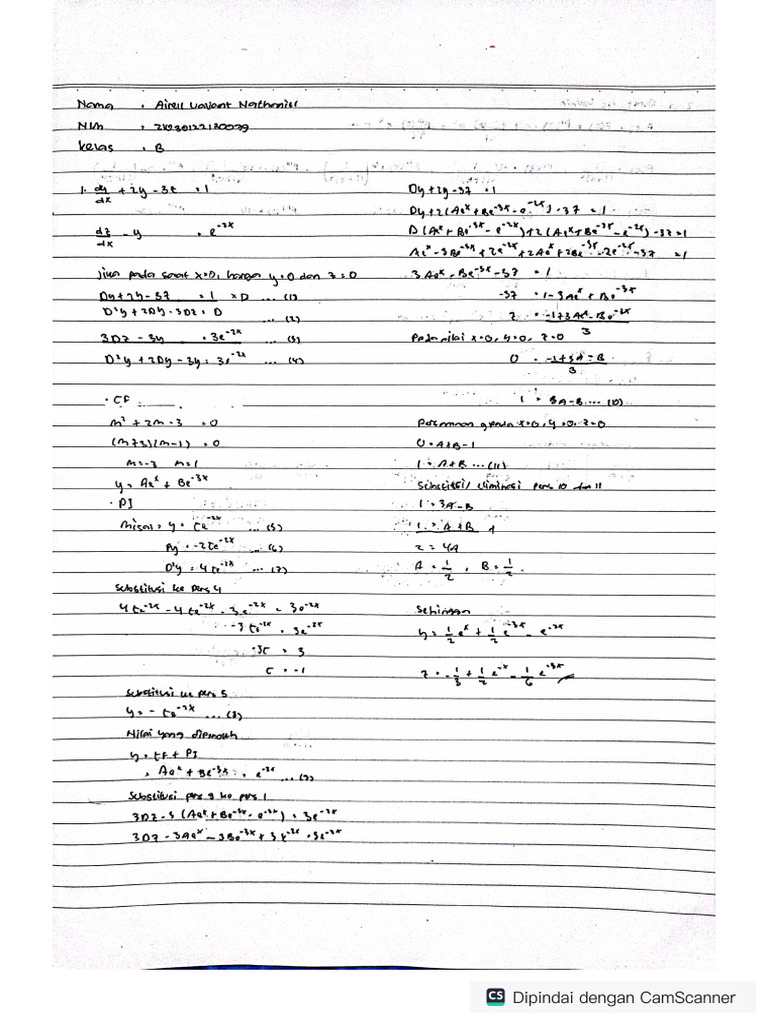 Nama : Airell Valiant Nathaniel
NIM : 2h030122130079
Kelas : B
1. dy/dx + 2y - 3z = 1
dz/dx - y = e^-2x
Jika pada saat x=0, harga y=0 dan z=0
Dy+2y-3z = 1 xD ... (1)
D²y + 2Dy - 3Dz = D ... (2)
3Dz - 3y = 3e^-2x ... (3)
D²y + 2Dy - 3y = 3e^-2x ... (4)
• CF
m² + 2m - 3 = 0
(m+3)(m-1) = 0
m=-3 m=1
y = Ae^x + Be^-3x
• PI
misal = y = Ce^-2x ... (5)
Dy = -2Ce^-2x ... (6)
D²y = 4Ce^-2x ... (7)
Substitusi ke pers 4
4Ce^-2x - 4Ce^-2x - 3Ce^-2x = 3e^-2x
-3Ce^-2x = 3e^-2x
-3C = 3
C = -1
Substitusi ke pers 5
y = - e^-2x ... (8)
Nilai yang diperoleh
y = CF + PI
= Ae^x + Be^-3x - e^-2x ... (9)
Substitusi pers 9 ke pers 1
3Dz - 3(Ae^x + Be^-3x - e^-2x) = 3e^-2x
3Dz - 3Ae^x - 3Be^-3x + 3e^-2x = 3e^-2x
Dy + 2y - 3z = 1
Dy + 2(Ae^x + Be^-3x - e^-2x) - 3z = 1
D(Ae^x + Be^-3x - e^-2x) + 2(Ae^x + Be^-3x - e^-2x) - 3z = 1
Ae^x - 3Be^-3x + 2e^-2x + 2Ae^x + 2Be^-3x - 2e^-2x - 3z = 1
3Ae^x - Be^-3x - 3z = 1
-3z = 1 - 3Ae^x + Be^-3x
z = (-1 + 3Ae^x - Be^-3x)/3
Pada nilai x=0, y=0, z=0
0 = (-1 + 3A - B)/3
1 = 3A - B ... (10)
Persamaan 9 pada x=0, y=0, z=0
0 = A+B-1
1 = A+B ... (11)
Substitusi/eliminasi pers 10 dan 11
1 = 3A - B
1 = A + B +
2 = 4A
A = 1/2, B = 1/2
Sehingga
y = 1/2 e^x + 1/2 e^-3x - e^-2x
z = -1/3 + 1/2 e^-x - 1/6 e^-3x
CS Dipindai dengan CamScanner